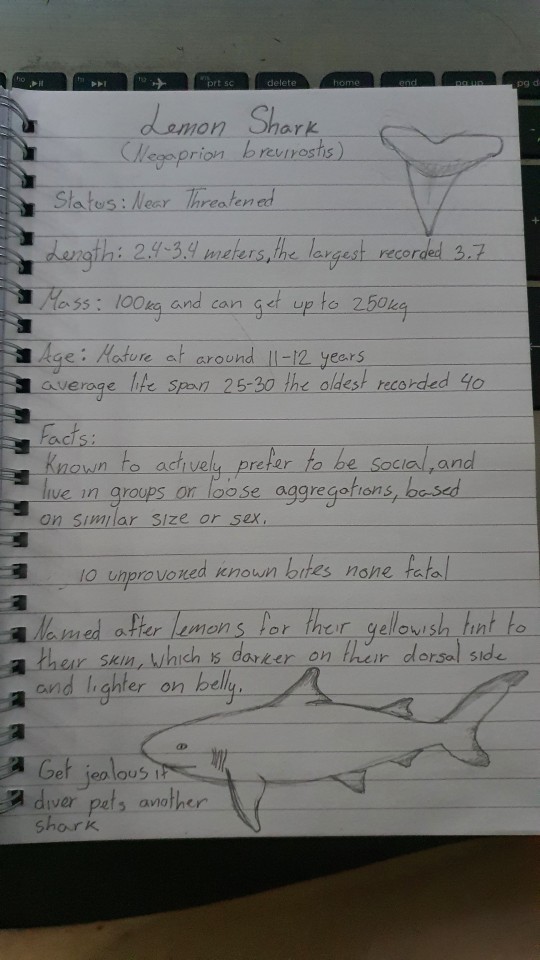 ho
ho
ho
ins
prt sc
delete
home
end
pg up
pg d
Lemon Shark
(Negaprion brevirostis)
Status: Near Threatened
Length: 2.4-3.4 meters, the largest recorded 3.7
Mass: 100kg and can get up to 250kg
Age: Mature at around 11-12 years
average life span 25-30 the oldest recorded 40
Facts:
Known to actively prefer to be social, and
live in groups or loose aggregations, based
on similar size or sex.
10 unprovoked known bites none fatal
Named after lemons for their yellowish tint to
their skin, which is darker on their dorsal side
and lighter on belly.
Get jealous if
diver pets another
shark